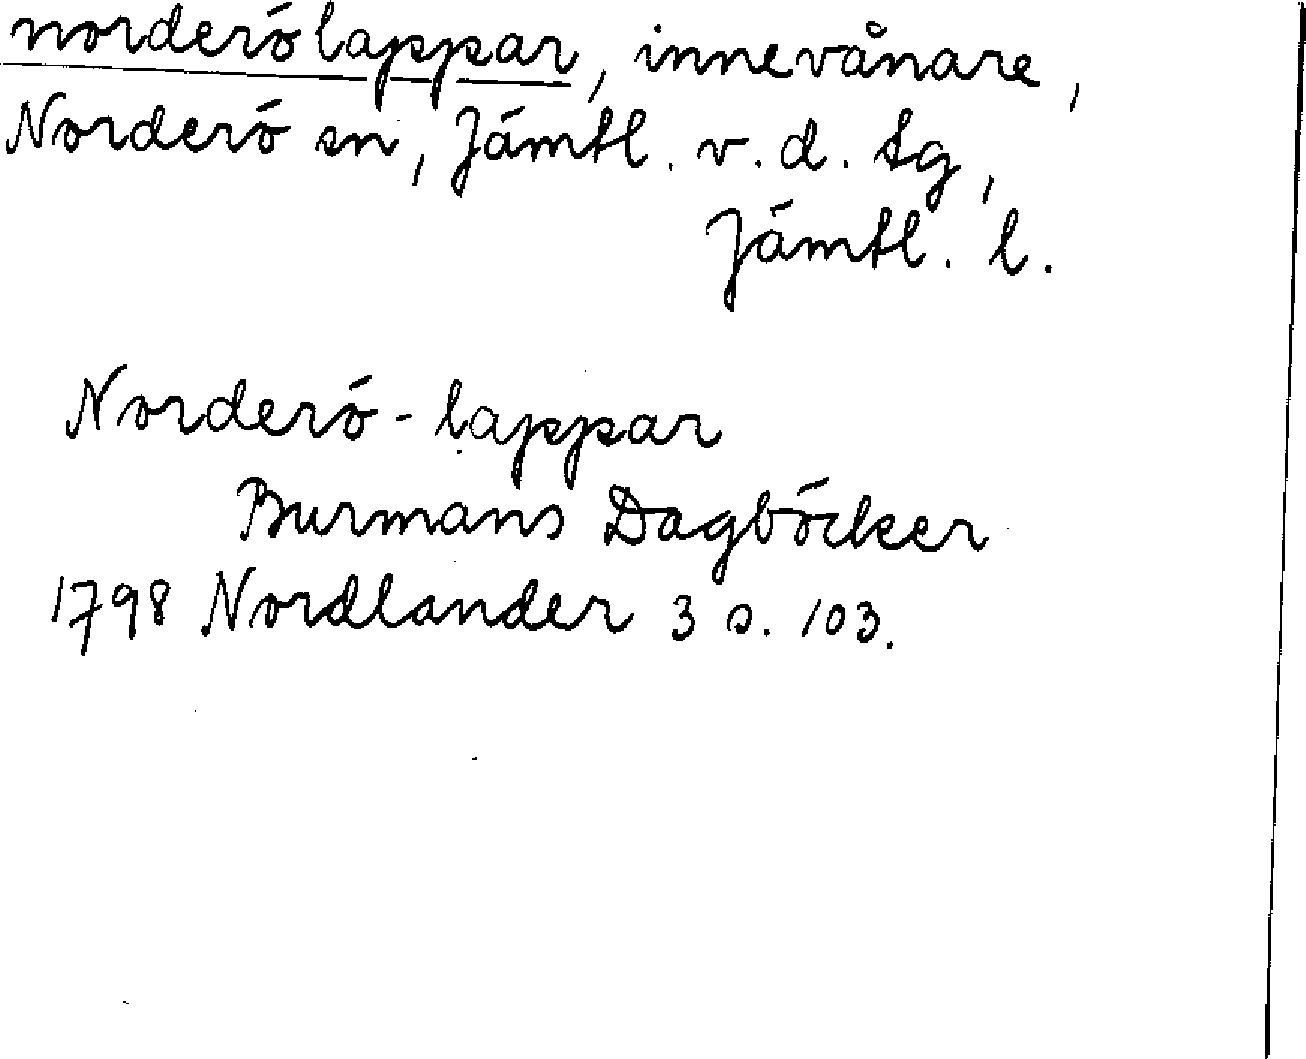 norderölappar, innevånare,
Norderö sn, Jämtl. v. d. tg,
Jämtl. l.
Norderö-lappar
Burmans Dagböcker
1798 Nordlander 3 s. 103.